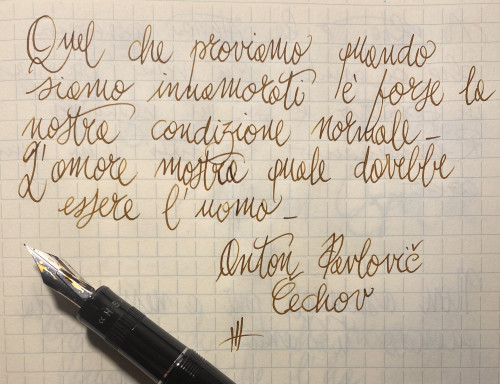 Quel che proviamo quando
siamo innamorati è forse la
nostra condizione normale_
L'amore mostra quale dovrebbe
essere l'uomo_
Anton Pavlovič
Čechov